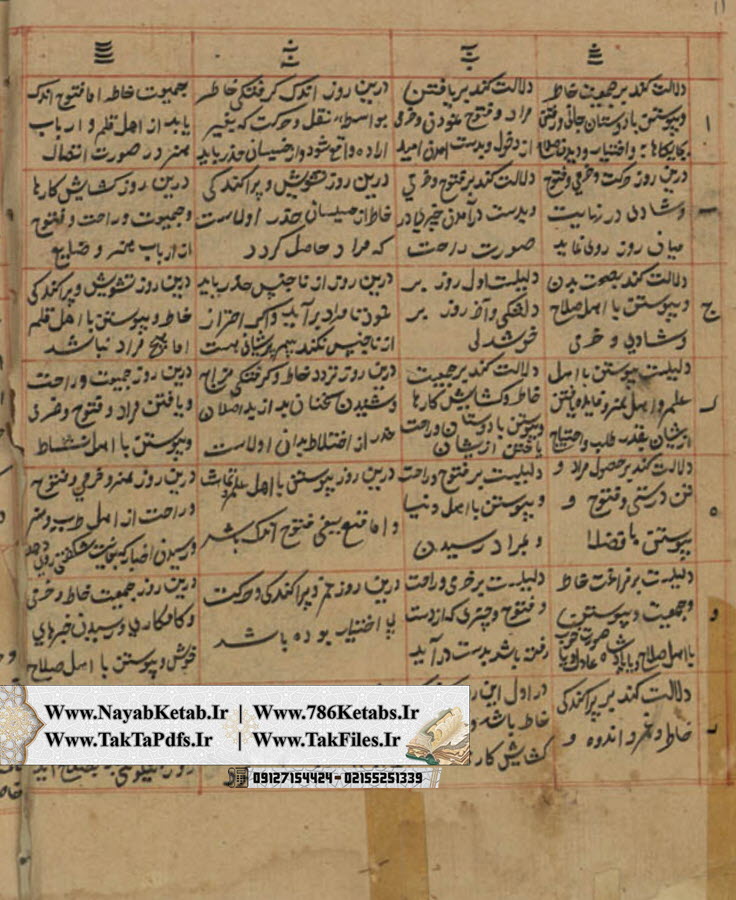 دلالت کند بر جمعیت خاطر
و پیوستن با دوستان جانی و رفتن
بجایکاها به واختیار و دیدن
دلالت کند بر یافتن
مراد و فتوح نمودن و خرمی
از دخول و بدست آمدن امید
درین روز اندک گرفتگی خاطر
بواسطه نقل و حرکت که بغیر
اراده واقع شود و از خسیسان حذر باید
جمعیت خاطر اما فتوح اندک
یابد از اهل قلم و ارباب
هنر در صورت انتقال
ا
درین روز حرکت و خرمی و فتوح
و شادی در نهایت
میان روز روی نماید
دلالت کند بر فتوح و خرمی
و بدست در آمدن چیزها در
صورت راحت
درین روز تشویش و پراکندگی
خاطر از خسیسان حذر اولیاست
که مراد حاصل گردد
درین روز گشایش کارها
و جمعیت و راحت و فتوح
از ارباب هنر و صنایع
دلالت کند بصحت بدن
و پیوستن با اهل صلاح
و شادی و خرمی
دلیلست اول روز بر
دلتنگی و آخر روز بر
خوشدلی
درین روز از ناجنس حذر باید
نمود تا مراد بر آید و اگر احتراز
از ناجنس نکند بیم پریشانی هست
درین روز تشویش و پراکندگی
خاطر و پیوستن با اهل قلم
اما هیچ مراد نباشد
ج
دلیلست پیوستن با اهل
علم و اهل هنر و فایده یافتن
ازیشان بقدر طلب و احتیاج
دلالت کند بر جمعیت
خاطر و گشایش کارها
و پیوستن با دوستان و راحت
یافتن ازیشان
درین روز تردد خاطر و گرفتگی مزاج
و شنیدن سخنان بد از بد اصلان
حذر از اختلاط بدان اولیاست
درین روز جمعیت و راحت
و یافتن مراد و فتوح و خرمی
و پیوستن با اهل نشاط
د
دلالت کند بر حصول مراد و
تن درستی و فتوح و
پیوستن با فضلا
دلیلست بر فتوح و راحت
و پیوستن با اهل دنیا
و بمراد رسیدن
درین روز پیوستن با اهل علم
و اما فتوح اندک باشد
درین روز هنر و خرمی و فتوح
و راحت از اهل طرب و هنر
و رسیدن اخبار که بغایت شکفتگی روی دهد
ه
دلیلست بر فراغت خاطر
و جمعیت و پیوستن
با اهل صلاح و با پادشاه عادل
دلیلست بر خرمی و راحت
و فتوح و چیزی که از دست
رفته باشد بدست در آید
درین روز هم و پراکندگی و حرکت
بی اختیار بوده باشد
درین روز جمعیت خاطر و خرمی
و کامکاری و رسیدن خبرهای
خوش و پیوستن با اهل صلاح
و
دلالت کند بر پراکندگی
خاطر و غم و اندوه و
در اول این
خاطر باشد
گشایش کار
ز
www.NayabKetab.Ir | Www.786Ketabs.Ir
Www.TakTaPdfs.Ir | Www.TakFiles.Ir
09127154424 - 02155251339